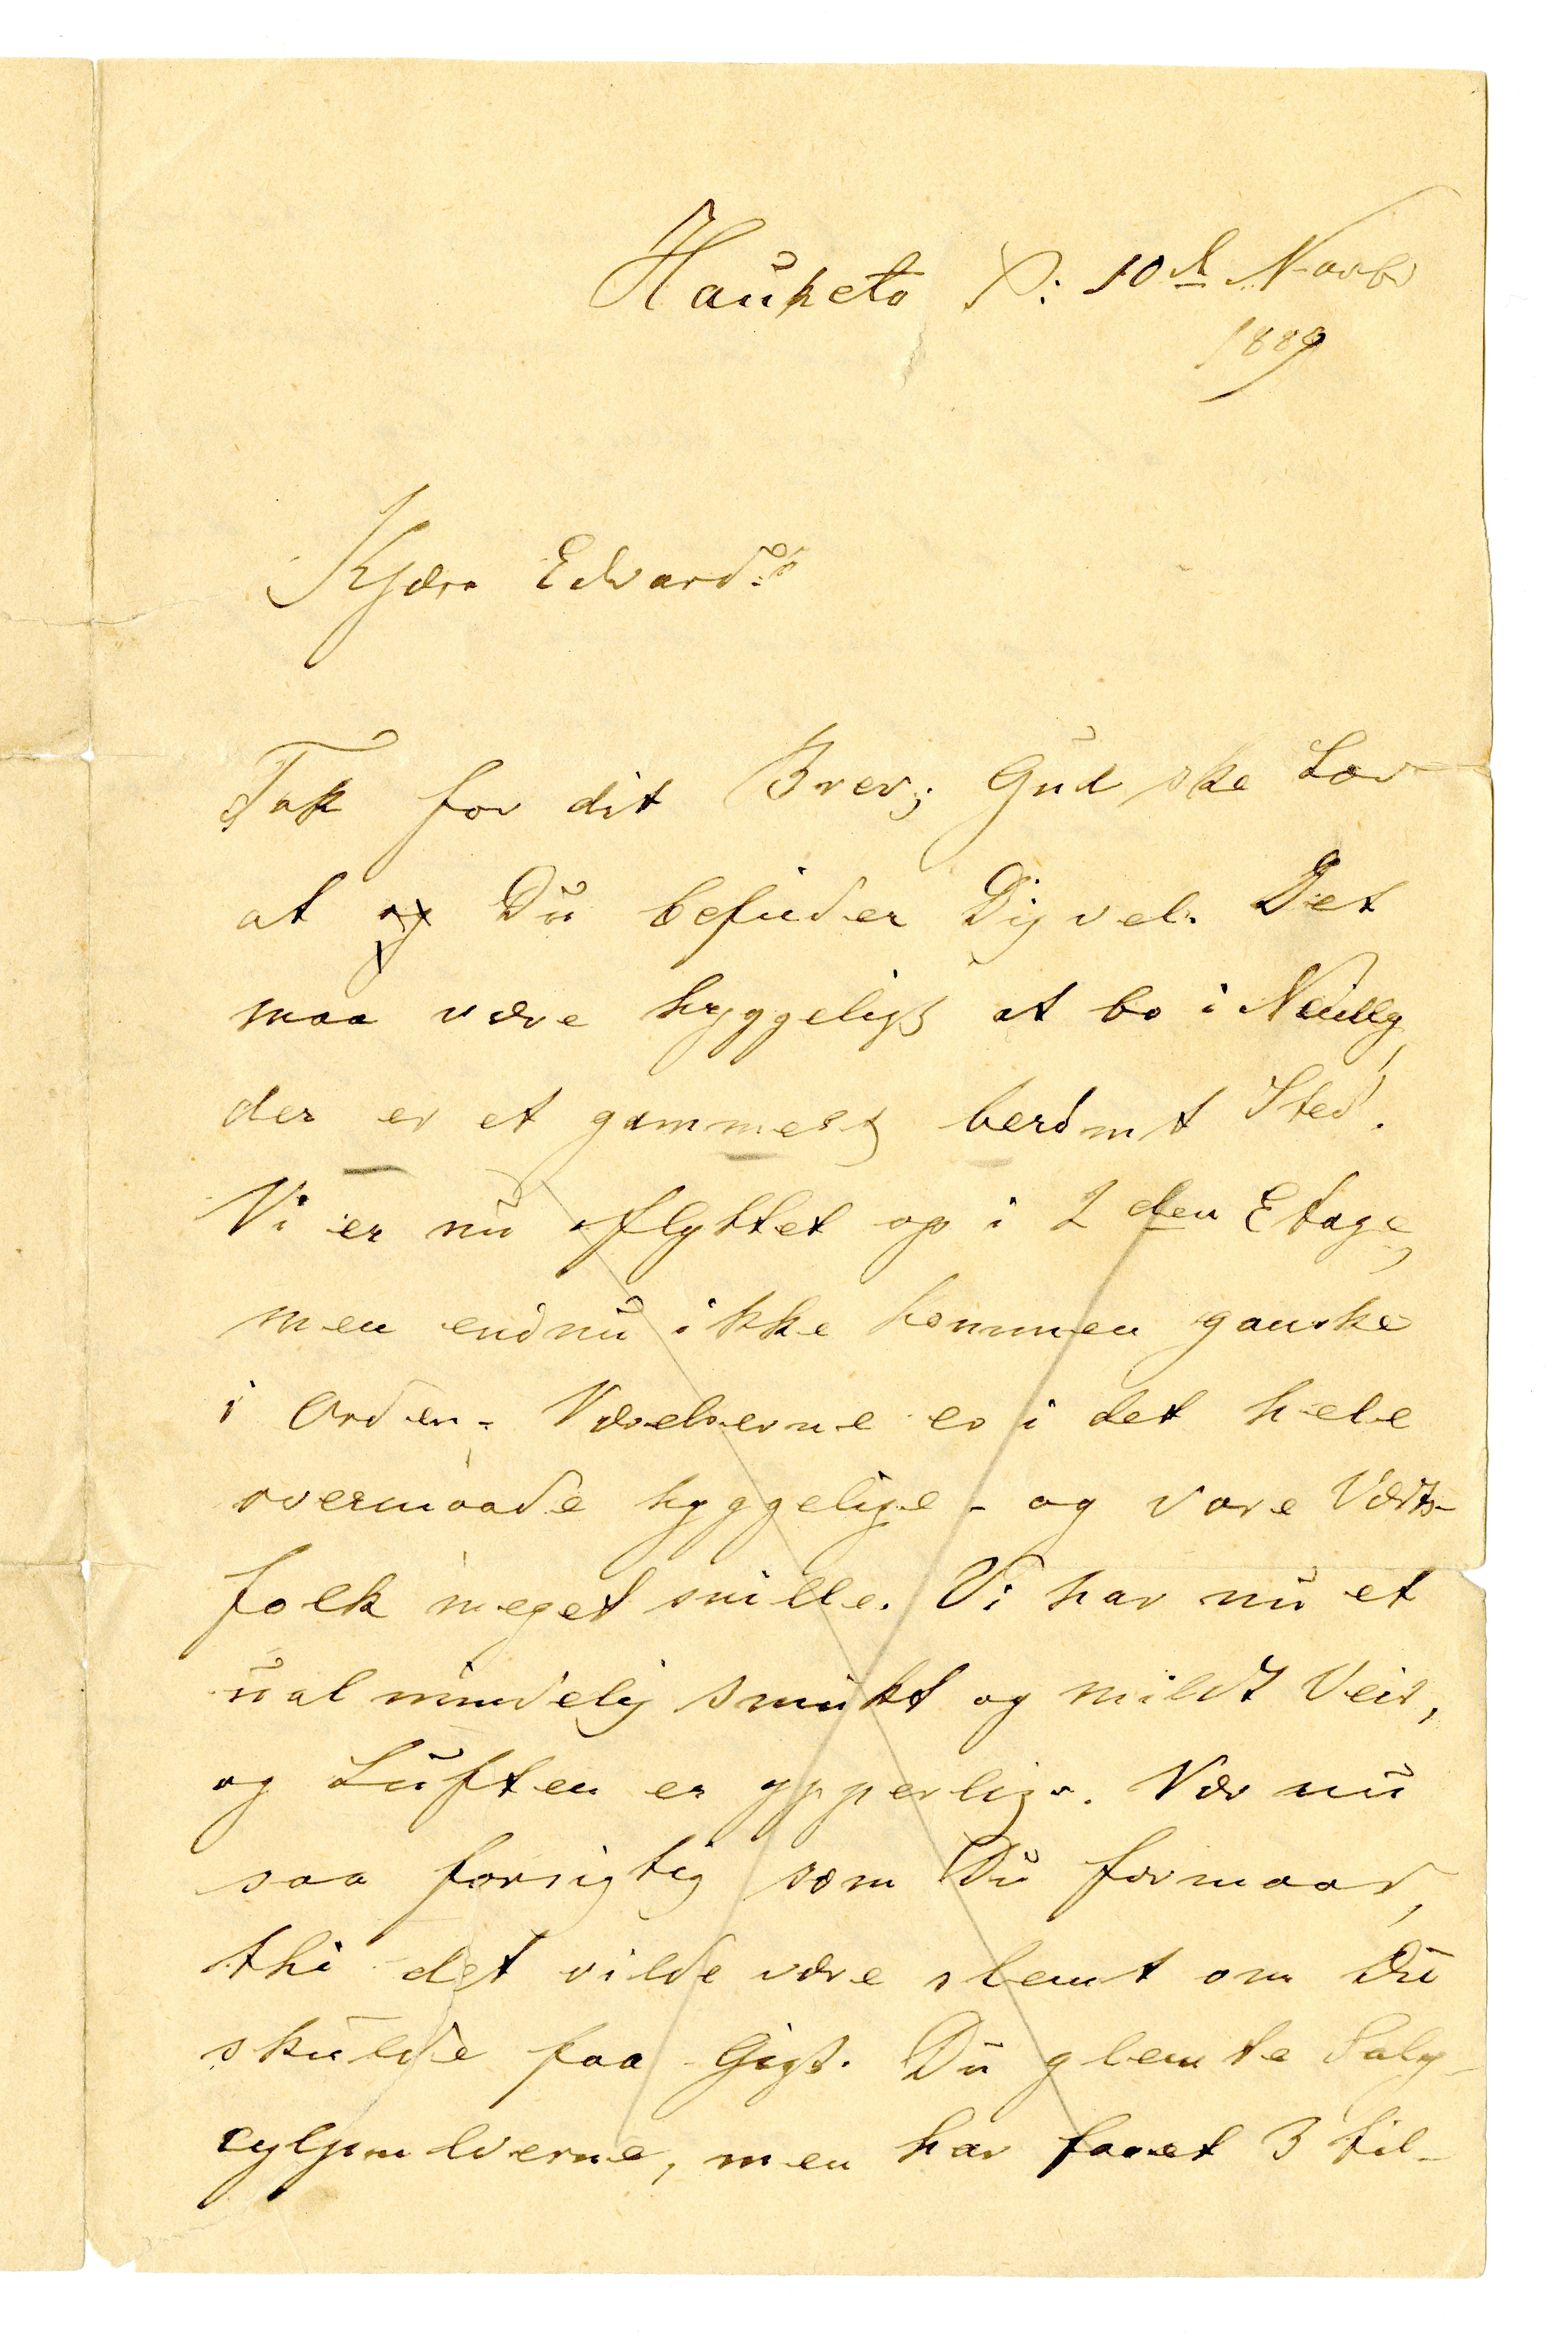 Hauketo D: 10de Novbr
1889
Kjære Edvard!
Tak for dit Brev; Gud ske Lov
at og Du befinder Dig vel. Det
maa være hyggeligt at bo i Neuilly,
der er et gammelt berømt Sted.
Vi er nu flyttet op i 2 den Etage,
men endnu ikke kommen ganske
i Orden. Værelserne er i det hele
overmaade hyggelige - og vore Værts-
folk meget snille. Vi har nu et
ualmindelig smukt og mildt Veir,
og Luften er ypperlig. Vær nu
saa forsigtig som Du formaar,
thi det vilde være slemt om Du
skulde faa Gigt. Du glemte Saly-
cylpulverne, men har faaet 3 til-